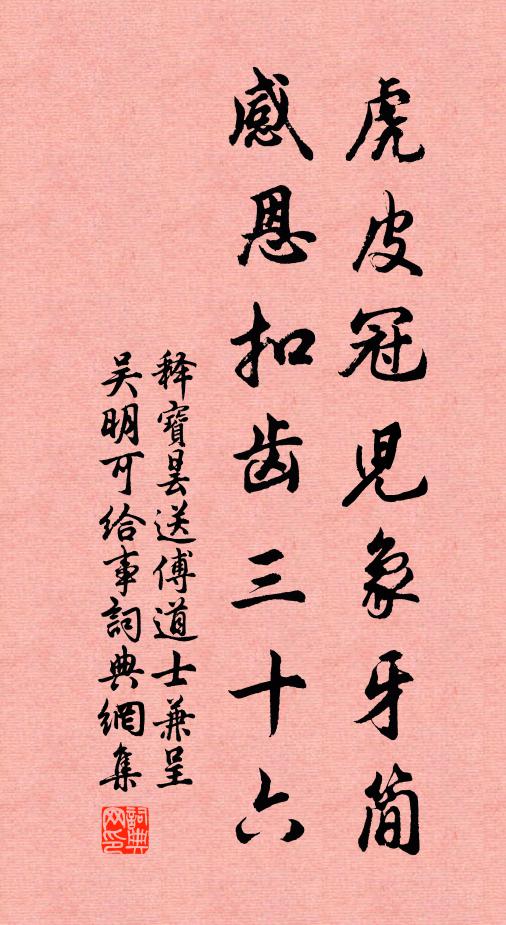 虎皮冠児象牙简
感恩扣齿三十六
释寶曇送傅道士兼呈
吴明可给事詞典網集
詞典网印